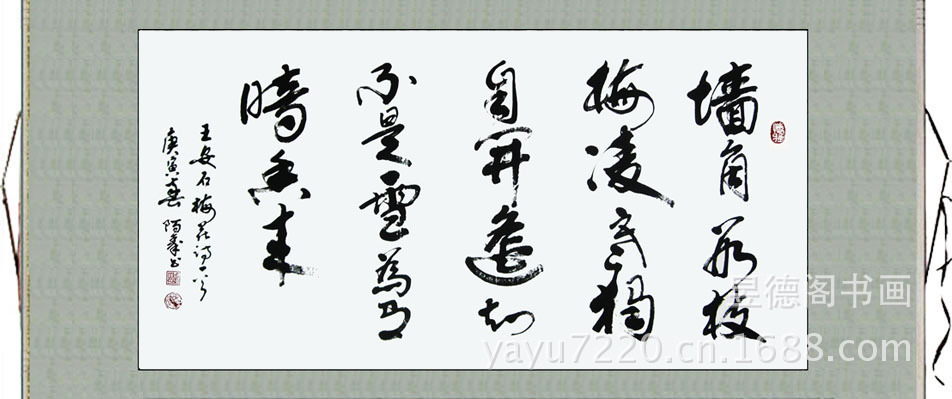 墙角数枝
梅凌寒独
自开遥知
不是雪為有
暗香来
王安石梅花诗一首
庚寅春
昱德阁书画
yayu7220.cn.1688.com